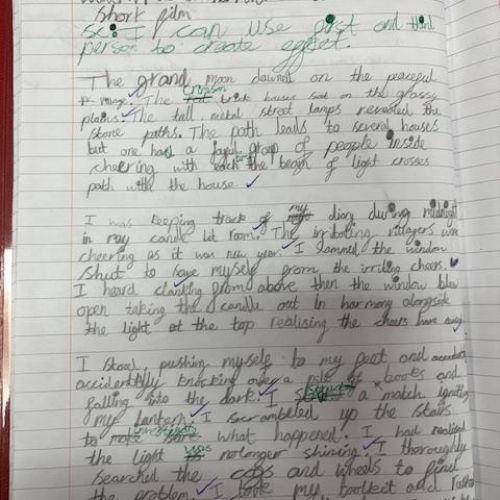 short film
sc: I can use first and third
person to create effect.
The grand moon dawned on the peaceful
village. The crimson brick houses sat on the glossy
plains. The tall metal street lamps revealed the
stone paths. The path leads to several houses
but one had a loyal group of people inside
cheering with each the beam of light crosses
path with the house
I was keeping track of my diary during midnight
in my candle lit room. The irritating villagers were
cheering as it was new year. I slammed the window
shut to save myself from the irriting cheers.
I heard clanking from above then the window blew
open taking the candle out in harmony alongside
the light at the top realising the cheers have
I stood, pushing myself to my feet and
accidentally knocking over a pile of books and
falling into the dark. I a match igniting
my lantern. I scrambeled up the stairs
to investigate what happened. I had realised
the light was nolonger shining. I thoroughly
searched the cogs and wheels to find
the problem. I took my toolkit and